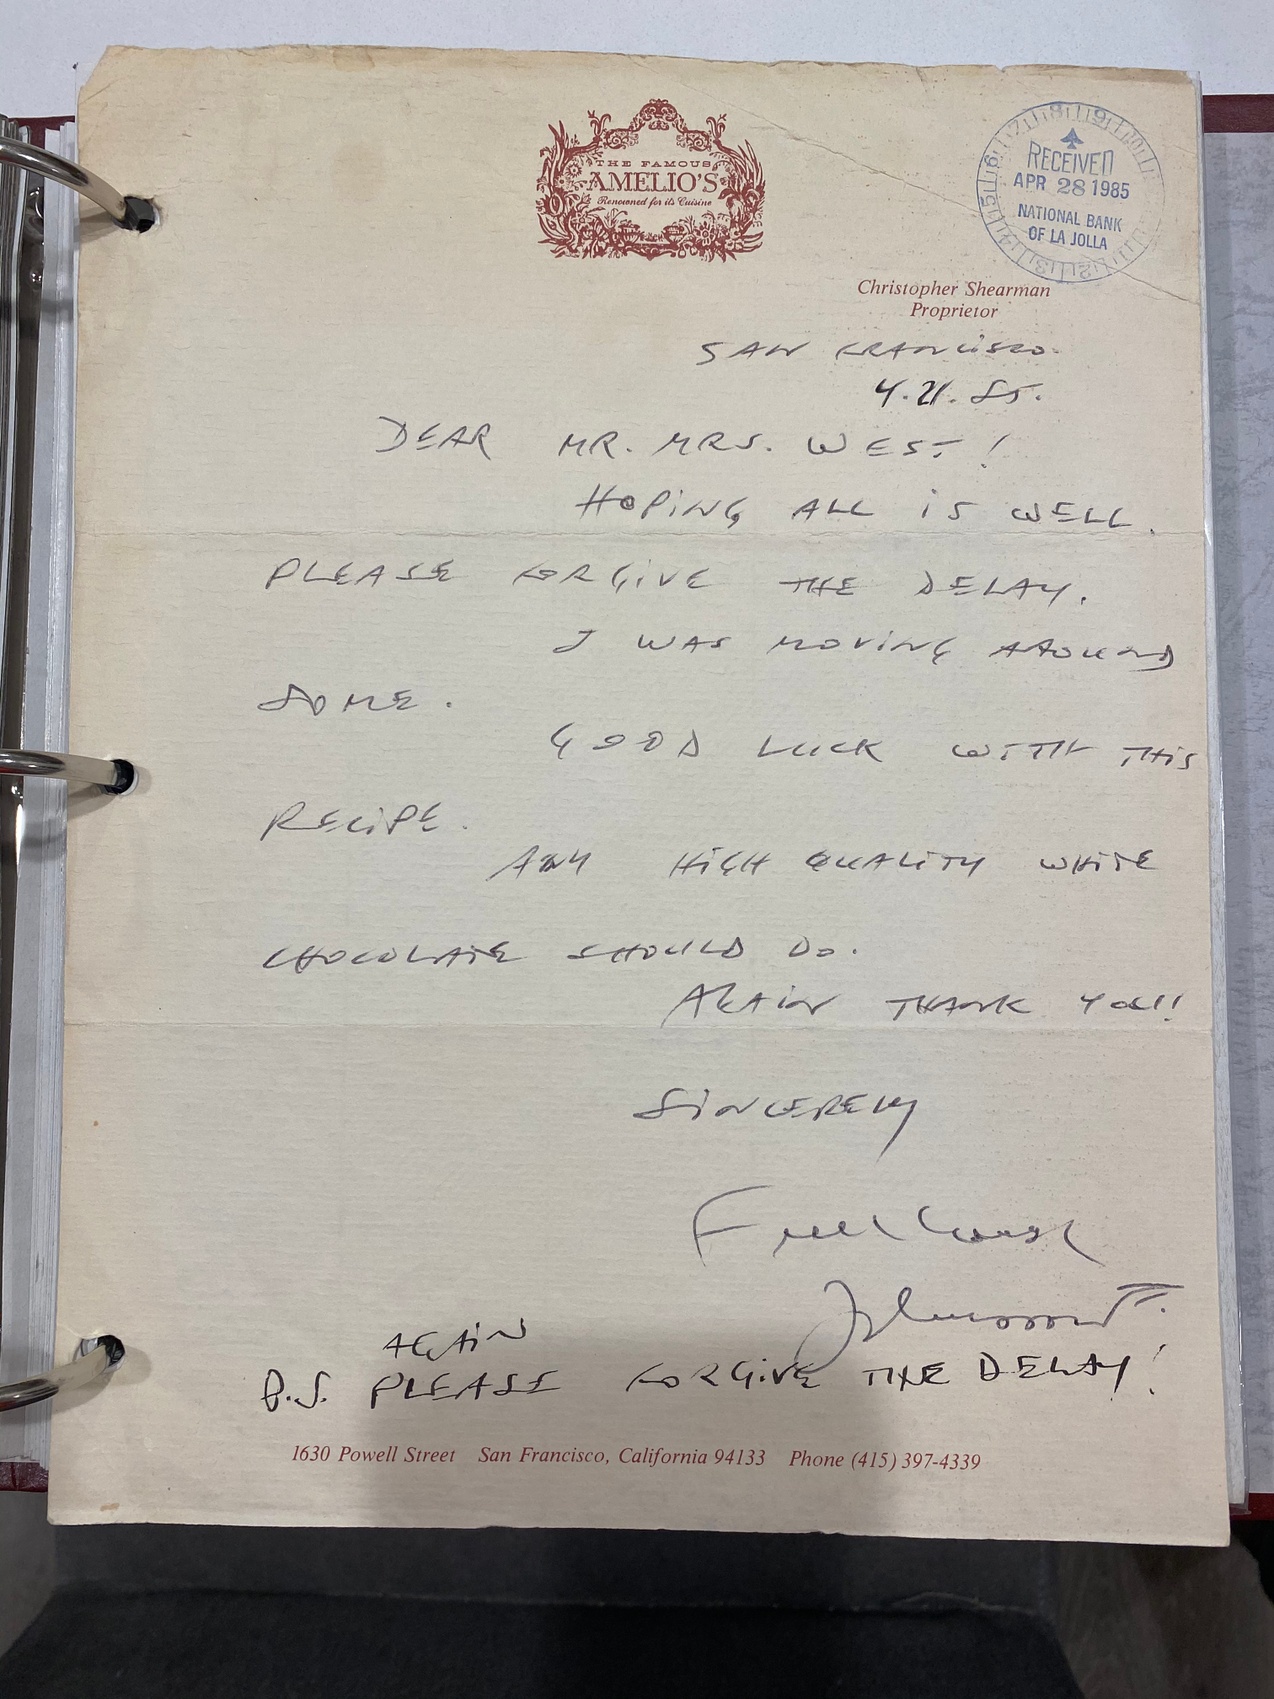 THE FAMOUS
AMELIO'S
Renowned for its Cuisine
RECEIVED
APR 28 1985
NATIONAL BANK
OF LA JOLLA
Christopher Shearman
Proprietor
SAN FRANCISCO.
4.21.85.
DEAR MR. MRS. WEST!
HOPING ALL IS WELL.
PLEASE FORGIVE THE DELAY.
I WAS MOVING AROUND
SOME.
GOOD LUCK WITH THIS
RECIPE.
ANY HIGH QUALITY WHITE
CHOCOLATE SHOULD DO.
AGAIN THANK YOU!!
SINCERELY
AGAIN
P.S. PLEASE FORGIVE THE DELAY!
1630 Powell Street San Francisco, California 94133 Phone (415) 397-4339